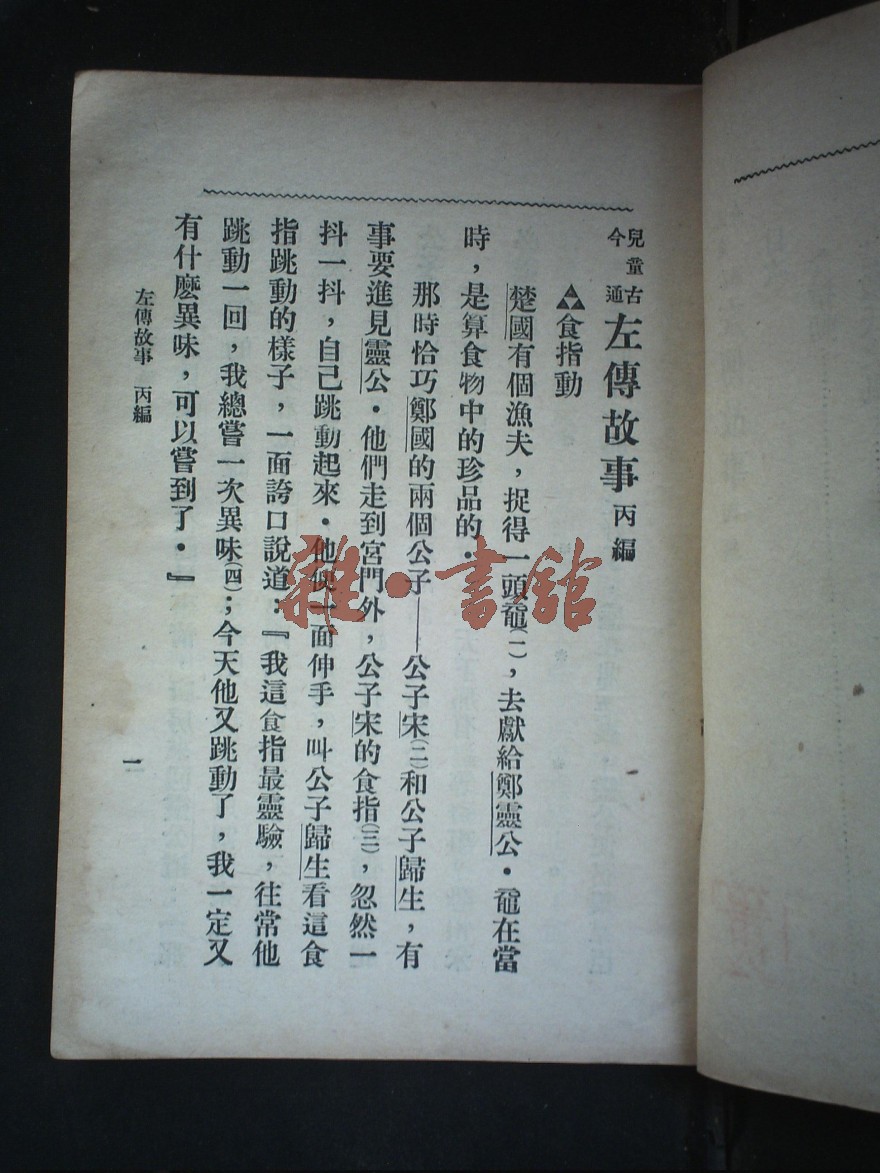 兒童古今通 左傳故事 丙編
▲食指動
楚國有個漁夫，捉得一頭黿(一)，去獻給鄭靈公．黿在當
時，是算食物中的珍品的．
那時恰巧鄭國的兩個公子——公子宋(二)和公子歸生，有
事要進見靈公．他們走到宮門外，公子宋的食指(三)，忽然一
抖一抖，自己跳動起來．他便一面伸手，叫公子歸生看這食
指跳動的樣子，一面誇口說道：『我這食指最靈驗，往常他
跳動一回，我總嘗一次異味(四)；今天他又跳動了，我一定又
有什麼異味，可以嘗到了．』
左傳故事 丙編
一
雜·書館